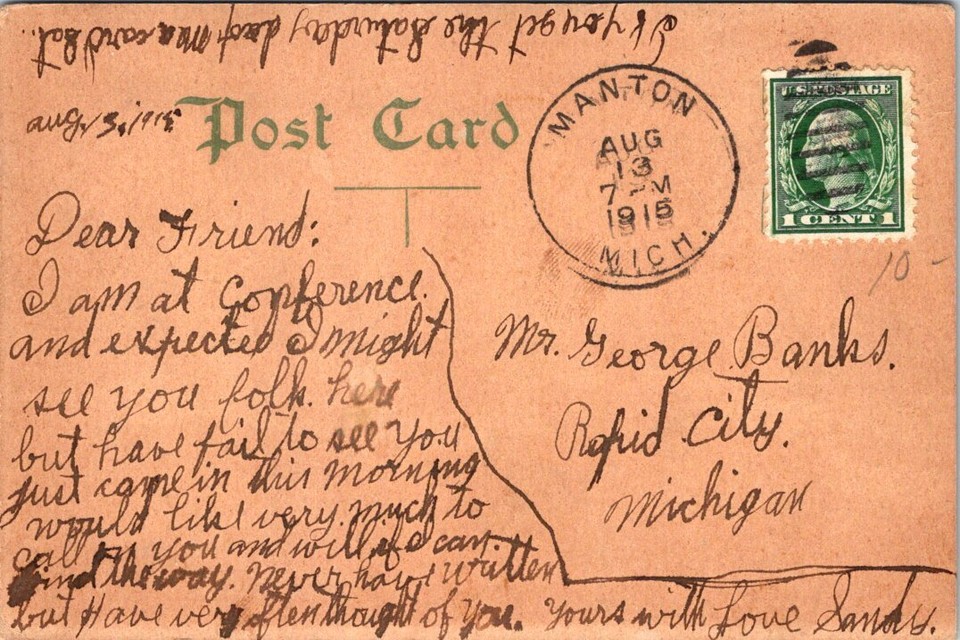 If you get the Saturday drop me a card Sat..
Aug, 13, 1915
Post Card
MANTON
AUG
13
7 PM
1915
MICH.
U.S. POSTAGE
1 CENT 1
10 -
Dear Friend:
I am at Conference.
and expected I might
see you folk. here
but have fail to see you
just came in this morning
would like very much to
call on you and will if I can.
find the way. Never have written
but Have very often thought of you. Yours with Love Sandy.
Mr. George Banks.
Rapid City.
Michigan